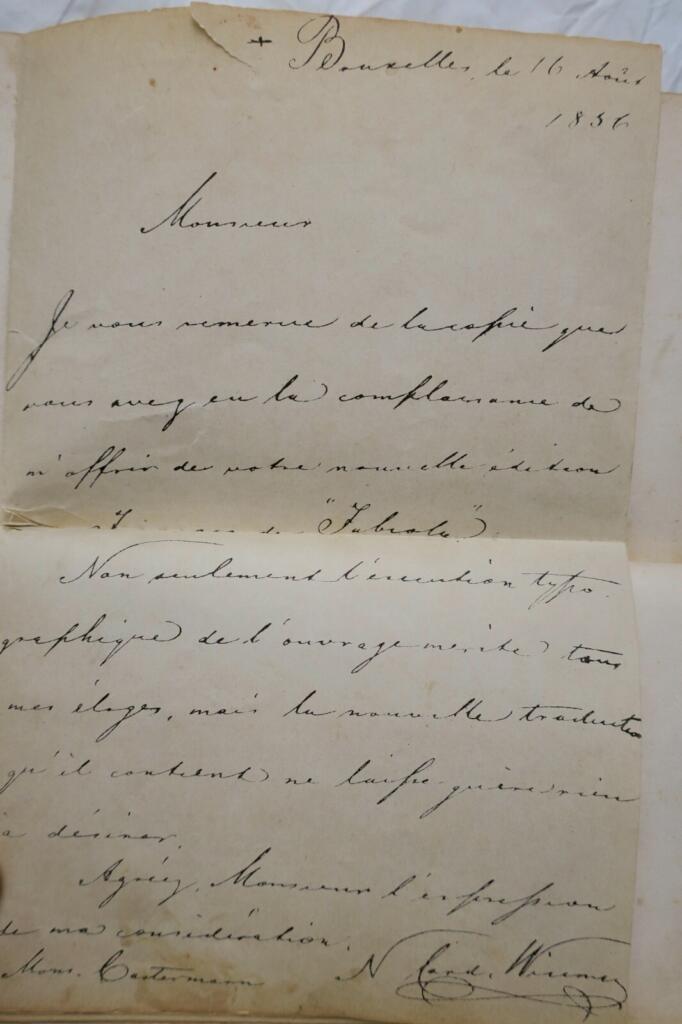 + Bruxelles, le 16 Août
1856
Monsieur
Je vous remercie de la copie que
vous avez eu la complaisance de
m'offrir de votre nouvelle édition
de "Fabiola"
Non seulement l'execution typo-
graphique de l'ouvrage merite tous
mes éloges, mais la nouvelle traduction
qu'il contient ne laisse guère rien
à désirer.
Agréez, Monsieur l'expression
de ma considération.
Mons. Castermann N Card. Wiseman